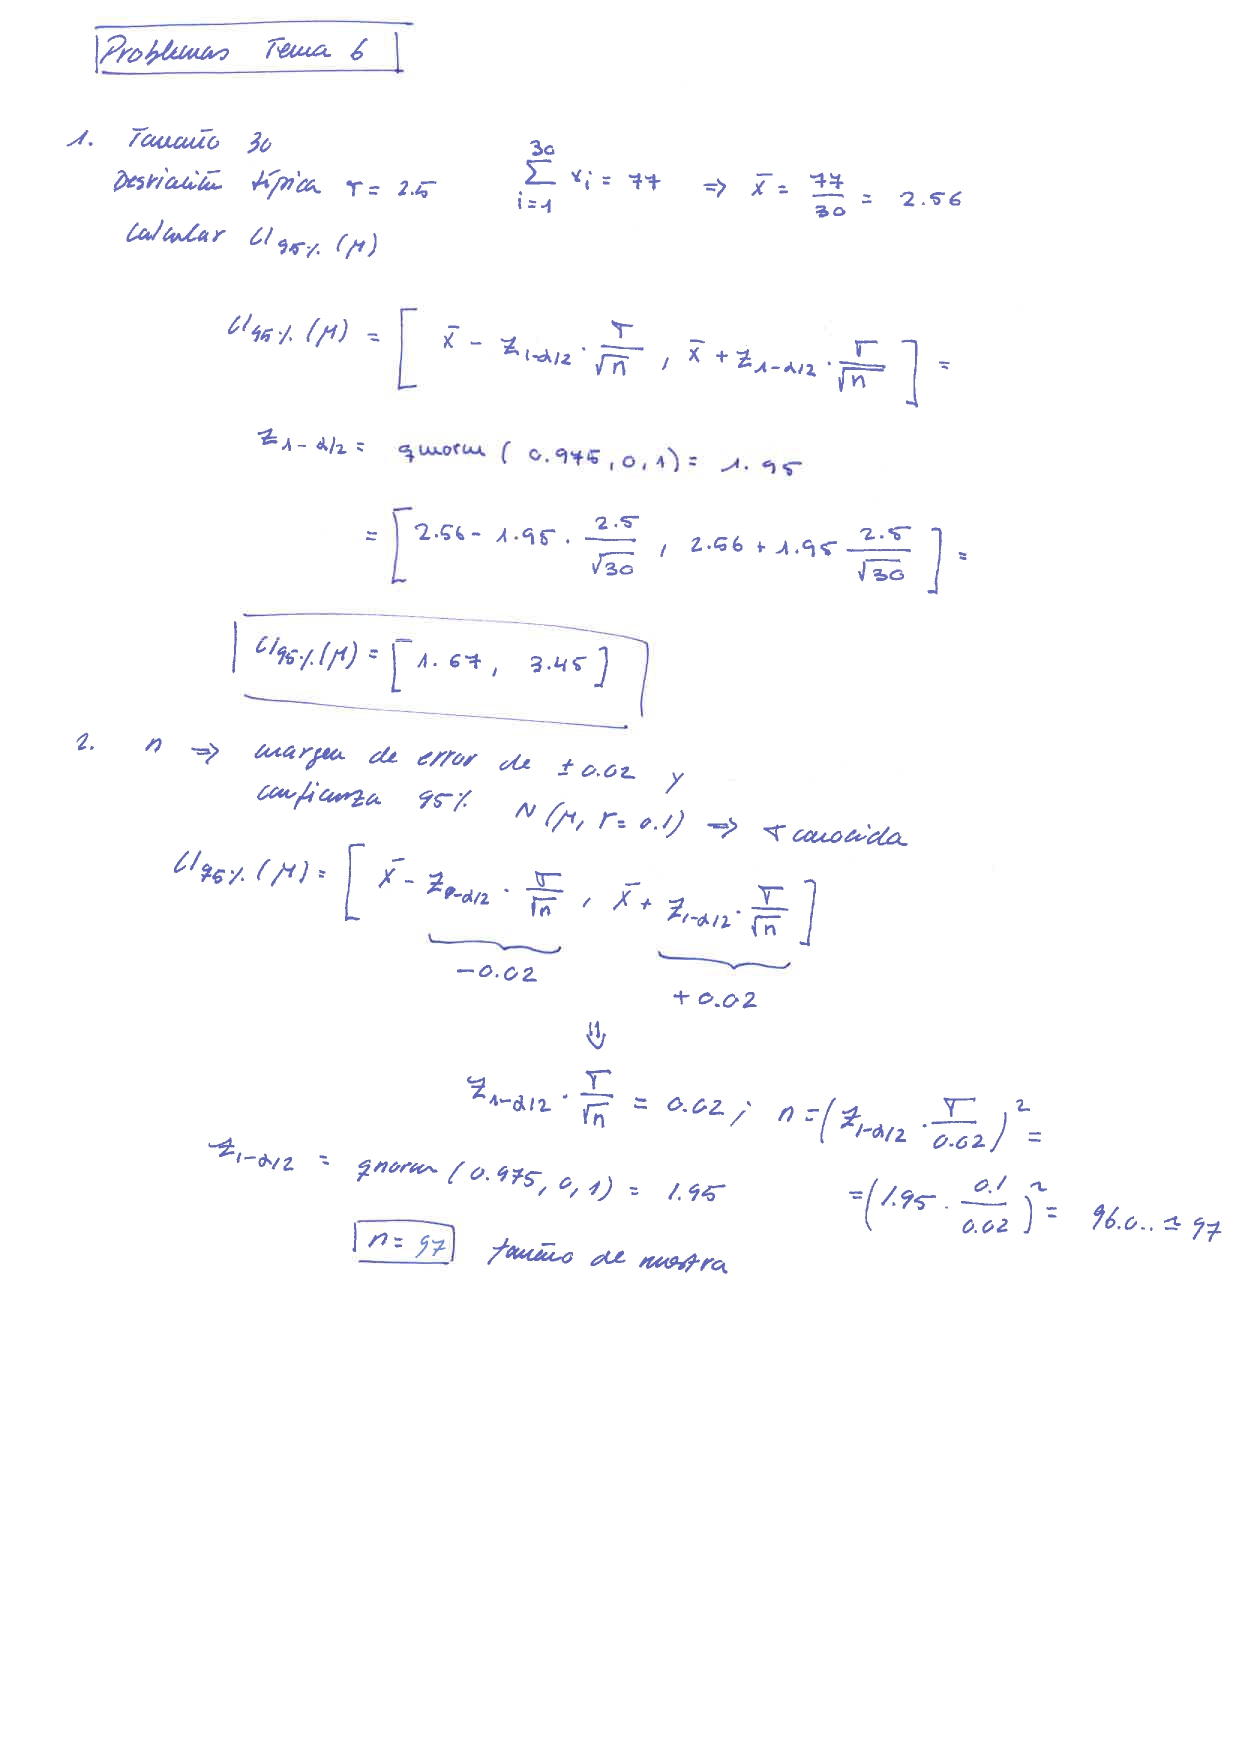 Problemas Tema 6
1. Tamaño 30
Desviación típica σ = 2.5
\sum_{i=1}^{30} x_i = 77 ⇒ x̄ = 77/30 = 2.56
Calcular CI_{95%}(μ)
CI_{95%}(μ) = [ x̄ - z_{1-α/2} · σ/√n , x̄ + z_{1-α/2} · σ/√n ] =
z_{1-α/2} = qnorm(0.975, 0, 1) = 1.95
= [ 2.56 - 1.95 · 2.5/√30 , 2.56 + 1.95 2.5/√30 ] =
CI_{95%}(μ) = [1.67, 3.45]
2. n ⇒ margen de error de ± 0.02 y
confianza 95% N(μ, σ = 0.1) ⇒ σ conocida
CI_{95%}(μ) = [ x̄ - z_{1-α/2} · σ/√n , x̄ + z_{1-α/2} · σ/√n ]
-0.02 +0.02
⇓
z_{1-α/2} · σ/√n = 0.02 ; n = (z_{1-α/2} · σ/0.02)^2 =
z_{1-α/2} = qnorm(0.975, 0, 1) = 1.95 = (1.95 · 0.1/0.02)^2 = 96.0.. ≃ 97
n = 97 tamaño de muestra